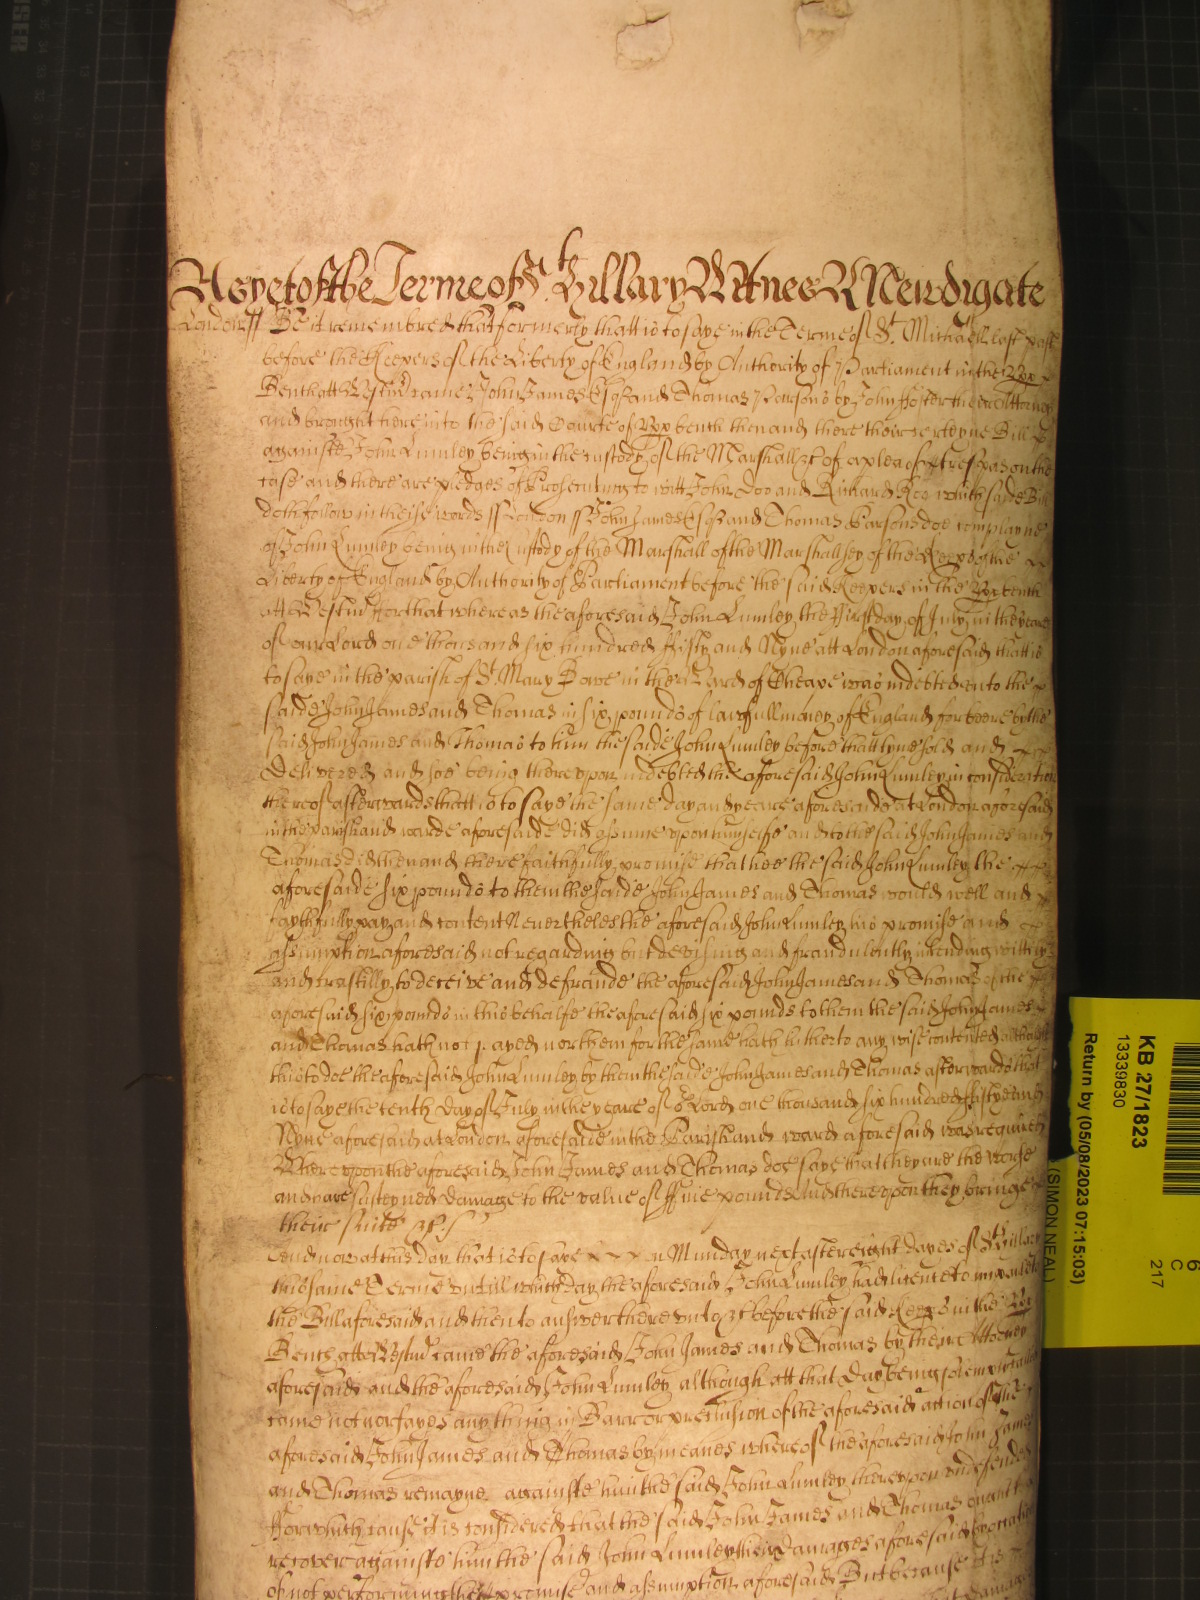 As yet of the Terme of St. Hillary Witnes R Newdigate
London ss Be it remembred that formerly that is to saye in the Terme of St. Michaell last past
before the Keepers of the Liberty of England by Authority of Parliament in the Upper
Bench att Westmr came John James Esqr and Thomas Parsons by John Foster their Attorney
and brought here into the said Courte of Upper bench then and there their certeyne Bill
againste John Lumley being in the custody of the Marshall &c of a plea of trespas on the
case and there are pledges of Prosecuting to witt John Doo and Richard Roo which saide Bill
doth follow in theise words ss London ss John James Esqr and Thomas Parsons doe complayne
of John Lumley being in the Custody of the Marshall of the Marshallsey of the Keeps of the
Liberty of England by Authority of Parliament before the said Keepers in the Upper bench
att Westmr For that whereas the aforesaid John Lumley the First day of July in the yeare
of our Lord one thousand six hundred Fifty and Nyne att London aforesaid that is
to saye in the parish of St Mary Bowe in the Ward of Cheape was indebted unto the
saide John James and Thomas in six pounds of lawfull money of England for beere by the
said John James and Thomas to him the saide John Lumley before that tyme sold and
Delivered and soe being thereupon indebted the aforesaid John Lumley in consideration
thereof afterwards that is to saye the same day and yeare aforesaide at London aforesaid
in the parish and warde aforesaide did assume upon himselfe and to the said John James and
Thomas did then and there faithfully promise that hee the said John Lumley the
aforesaide six pounds to them the saide John James and Thomas would well and
faythfully pay and content Neverthelesse the aforesaid John Lumley his promise and
assumption aforesaid not regarding but devising and fraudulently intending wittily
and craftilly to deceive and defraude the aforesaid John James and Thomas of the
aforesaid six pounds in this behalfe the aforesaid six pounds to them the said John James
and Thomas hath not payed nor them for the same hath hitherto any wise contented although
this to doe the aforesaid John Lumley by them the saide John James and Thomas afterwards that
is to saye the tenth day of July in the yeare of or Lord one thousand six hundred Fifty and
Nyne aforesaid at London aforesaide in the Parish and ward aforesaid was required
Whereupon the aforesaid John James and Thomas doe saye that they are the worse
and have susteyned damage to the value of Fyve pounds And thereupon they bringe
their suite &c
And now at this day that is to saye on Munday next after eight dayes of St Hillary
this same Terme untill which day the aforesaid John Lumley had licence to imparle to
the Bill aforesaid and then to answer thereunto &c before the said Keeps in the Upper
Bench att Westmr came the aforesaid John James and Thomas by their Attorney
aforesaid and the aforesaid John Lumley although att that day being solemnly called
came not nor sayes any thing in Barr or preclusion of the aforesaid action of the
aforesaid John James and Thomas by meanes whereof the aforesaid John James
and Thomas remayne againste him the said John Lumley thereupon undefended
For which cause it is considered that the said John James and Thomas ought to
recover againste him the said John Lumley their Damages aforesaid by occasion
of not performing the promise and assumption aforesaid But because it is